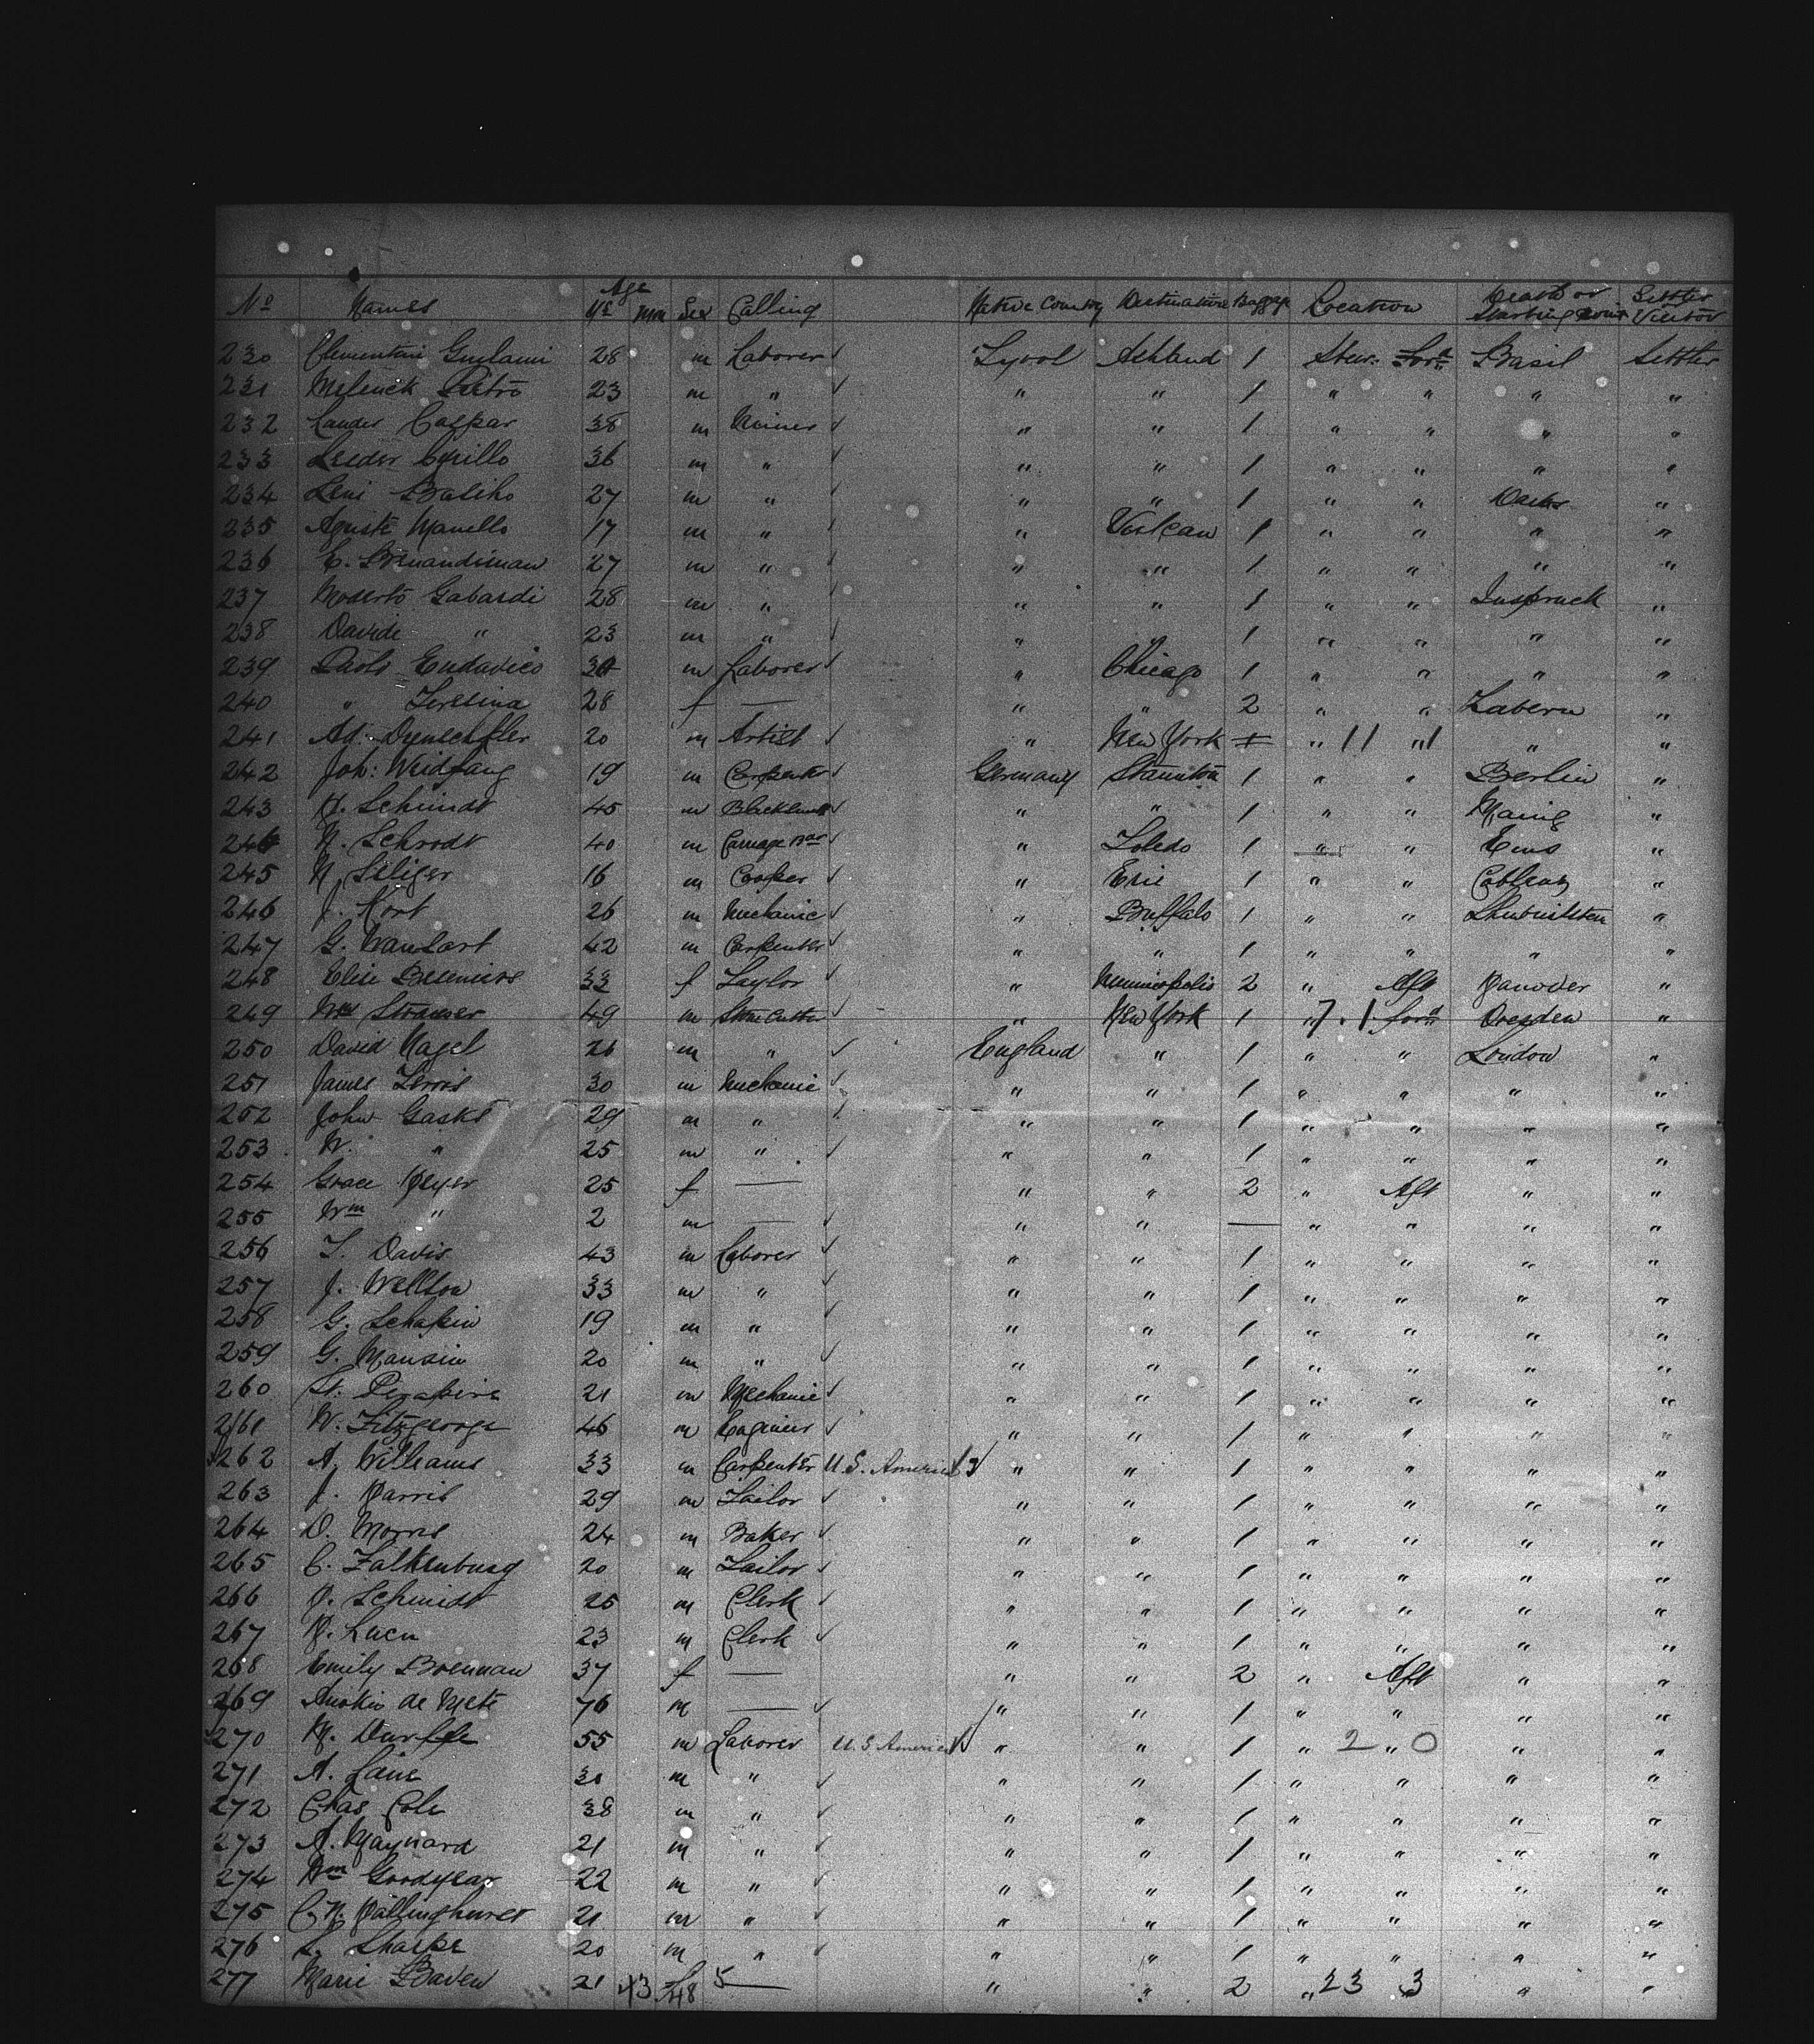 No Names Age Yrs Mos Sex Calling Native Country Destination Baggage Location Death or Starting point Settler Visitor
230 Clementini Guilami 28 m Laborer ✓ Tyrol Ashland 1 Steer. Ford Basil Settler
231 Pietro 23 m " ✓ " " 1 " " " "
232 Lander Caspar 38 m Miner ✓ " " 1 " " " "
233 Leeder Cirillo 36 m " ✓ " " 1 " " " "
234 Leni Basilio 27 m " ✓ " " 1 " " "
235 Manello 17 m " ✓ " Vulcan 1 " " " "
236 E. 27 m " ✓ " " 1 " " " "
237 Modesto Gabardi 28 m " ✓ " " 1 " " Inspruck "
238 Davide " 23 m " ✓ " " 1 " " " "
239 Paolo Eudavico m Laborer ✓ " Chicago 1 " " " "
240 " Teresina 28 f — " " 2 " " Zabern "
241 Ad. 20 m Artist ✓ " New York 1 " 11 " 1 " "
242 Joh: Weidfang 19 m Carpenter ✓ Germany Staunton 1 " " Berlin "
243 H. Schmidt 45 m Blacksmith ✓ " " 1 " " Maing "
244 N. Schrodt 40 m Carriage ✓ " Toledo 1 " " Ems "
245 N. Seliger 16 m Cooper ✓ " Erie 1 " " Coblenz "
246 J. Kort 26 m Mechanic ✓ " Buffalo 1 " " "
247 G. 42 m Carpenter ✓ " " 1 " " " "
248 Elise 33 f Taylor ✓ " Minniopolis 2 " Aft Hanover "
249 Wm Strasser 49 m Stone Cutter ✓ " New York 1 " 7.1 Ford Dresden "
250 David Nagel 26 m " ✓ England " 1 " " London "
251 James Ferris 30 m Mechanic ✓ " " 1 " " " "
252 John Gasks 29 m " ✓ " " 1 " " " "
253 W. " 25 m " ✓ " " 1 " " " "
254 Grace Heyer 25 f — " " 2 " Aft " "
255 Wm " 2 m — ✓ " " — " " " "
256 T. Davis 43 m Laborer ✓ " " 1 " " " "
257 J. Wellton 33 m " ✓ " " 1 " " " "
258 G. Schapin 19 m " ✓ " " 1 " " " "
259 G. Mansin 20 m " ✓ " " 1 " " " "
260 St. 21 m Mechanic ✓ " " 1 " " " "
261 W. Fitzgeorge 46 m Engineer ✓ " " 1 " " " "
262 A. Williams 33 m Carpenter U.S. America ✓ " " 1 " " " "
263 J. Harris 29 m Tailor ✓ " " 1 " " " "
264 D. Morris 24 m Baker ✓ " " 1 " " " "
265 C. Falkenburg 20 m Tailor ✓ " " 1 " " " "
266 O. Schmidt 25 m Clerk ✓ " " 1 " " " "
267 H. Lucu 23 m Clerk ✓ " " 1 " " " "
268 Emily Brennan 37 f — " " 2 " Aft " "
269 de Mets 76 m — ✓ " " 1 " " " "
270 M. 55 m Laborer U.S America ✓ " " 1 " 2 " 0 " "
271 A. Lane m " ✓ " " 1 " " " "
272 Chas Cole 38 m " ✓ " " 1 " " " "
273 A. Maynard 21 m " ✓ " " 1 " " " "
274 Wm Goodyear 22 m " ✓ " " 1 " " " "
275 C. H. Hallinghurst 21 m " ✓ " " 1 " " " "
276 S. Sharpe 20 m " ✓ " " 1 " " " "
277 Marie Baven 21 43 f 48 5 — " " 2 " 23 3 " "